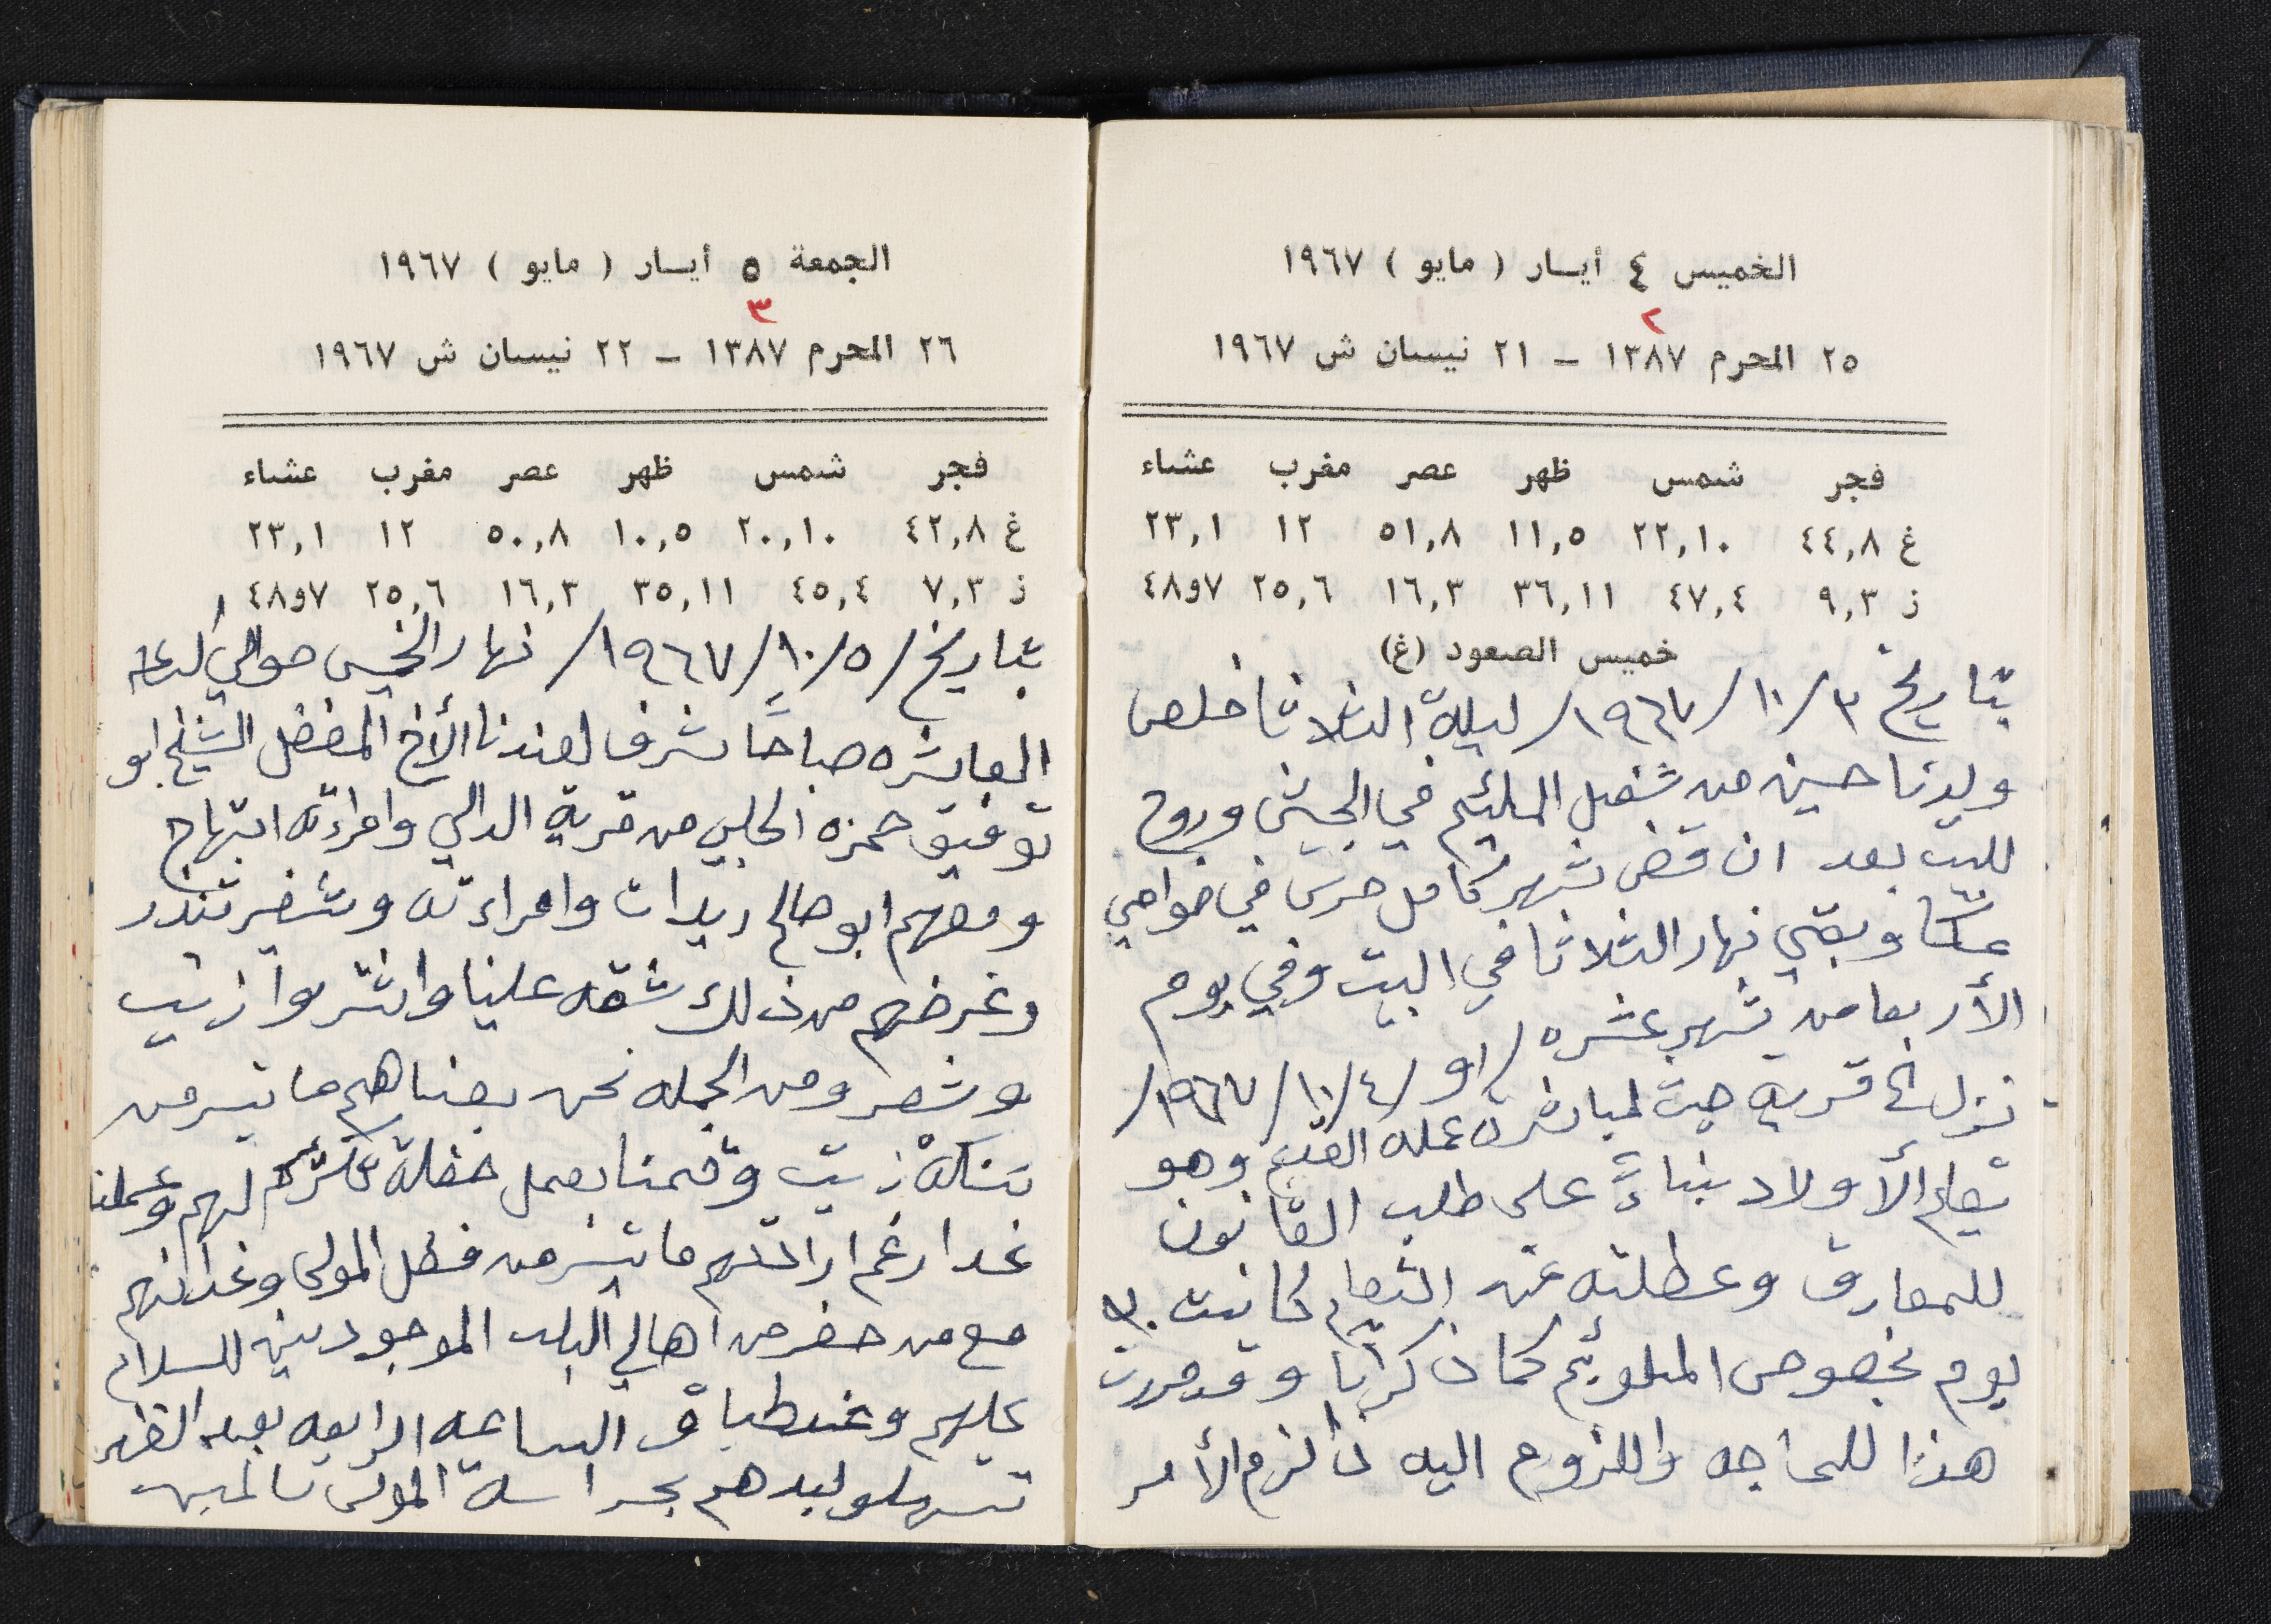 الخميس ٤ أيسار ( مايو ) ١٩٦٧
٢
٢٥ المحرم ١٣٨٧ – ٢١ نيسان ش ١٩٦٧
فجر شمس ظهر عصر مغرب عشاء
غ ٤٤,٨ ٢٢,١٠ ١١,٥ ٥١,٨ ١٢ ٢٣,١
ز ٩,٣ ٤٧,٤ ٣٦,١١ ١٦,٣ ٢٥,٦ ٧و٤٨
خميس الصعود (غ)
بتاريخ ٣/١٠/١٩٦٧/ ليلة الثلاثا خلص
وليدنا حسين من شغل الملئيم في الجيش وروح
للبيت بعد ان قضى شهر كامل حرس في ضواحي
عكا وبقي نهار الثلاثا في البيت وفي يوم
الأربعا من شهر عشره /او /٤/١٠/١٩٦٧/
نزل الى قرية جت لمباشرة عمله القديم وهو
يعلم الأولاد بناءً على طلب القانون
للمعارف وعطلته عن التعليم كانت ٣٠
يوم بخصوص الملوئيم كما ذكرنا وقد حررت
هذا للحاجه واللزوم اليه اذا لزم الأمر
الجمعة ٥ أيسار ( مايو ) ١٩٦٧
٣
٢٦ المحرم ١٣٨٧ – ٢٢ نيسان ش ١٩٦٧
فجر شمس ظهر عصر مغرب عشاء
غ ٤٢,٨ ٢٠,١٠ ١٠,٥ ٥٠,٨ ١٢ ٢٣,١
ز ٧,٣ ٤٥,٤ ٣٥,١١ ١٦,٣ ٢٥,٦ ٧و٤٨
بتاريخ /٥/١٠/١٩٦٧/ نهار الخميس حوالي
العاشره صباحًا شرف لعندنا الأخ المفضل الشيخ ابو
توفيق حمزه الحلبي من قرية الدالي وامرءته ابتهاج
ومعهم ابو صالح زيدات وامراءته وشفير تندر
وغرضهم من ذلك شقه علينا واشتروا زيت
وشعر ومن الجمله نحن بعناهم ما تيسر من
تنكة زيت وقمنا بعمل حفلة تكرم لهم وعملنا
غدا رغم ارادتهم ما تيسر من فضل المولى وغديناهم
مع من حضر من اهالي البلد الموجودين للسلام
عليهم وغبطباق الساعه الرابعه بعد الظهر
تسهلو لبلدهم بحراسة المولى سالمين